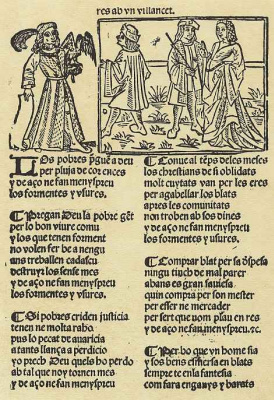 res ab vn villancet.
LOs pobres pregue a deu
per pluja de corences
y de aço ne fan menyspreu
los formentes y vsures.
Pregan Deu la pobre gēt
per lo bon viure comu
y los que tenen forment
no volen fer be a nengu
ans treballen cadascu
destruyr los sense mes
y de aço ne fan menyspreu
los formentes y vsures.
Si pobres criden justicia
tenen ne molta rabo
pus lo pecat de auaricia
a tants llança a perdicio
yo prech Deu quels ho perdo
ab tal que noy tornen mes
y de aço ne fan menyspreu
Conue al tēps deles meses
los chrestians de si oblidats
molt cuytats van per les eres
per agabellar los blats
apres les comunitats
non troben ab sos dines
y de aço ne fan menyspreu
los formentes y vsures.
Comprar blat per sa despesa
ningu tinch de mal parer
abans es gran sauiesa
quin compra per son mester
per esser ne mercader
per sert que vom plau en res
y de aço ne fan menyspreu. ꝛc.
Per ho que vn home sia
y sos bens esmersa en blats
sempre te en la fantesia
com fara enganys y barats